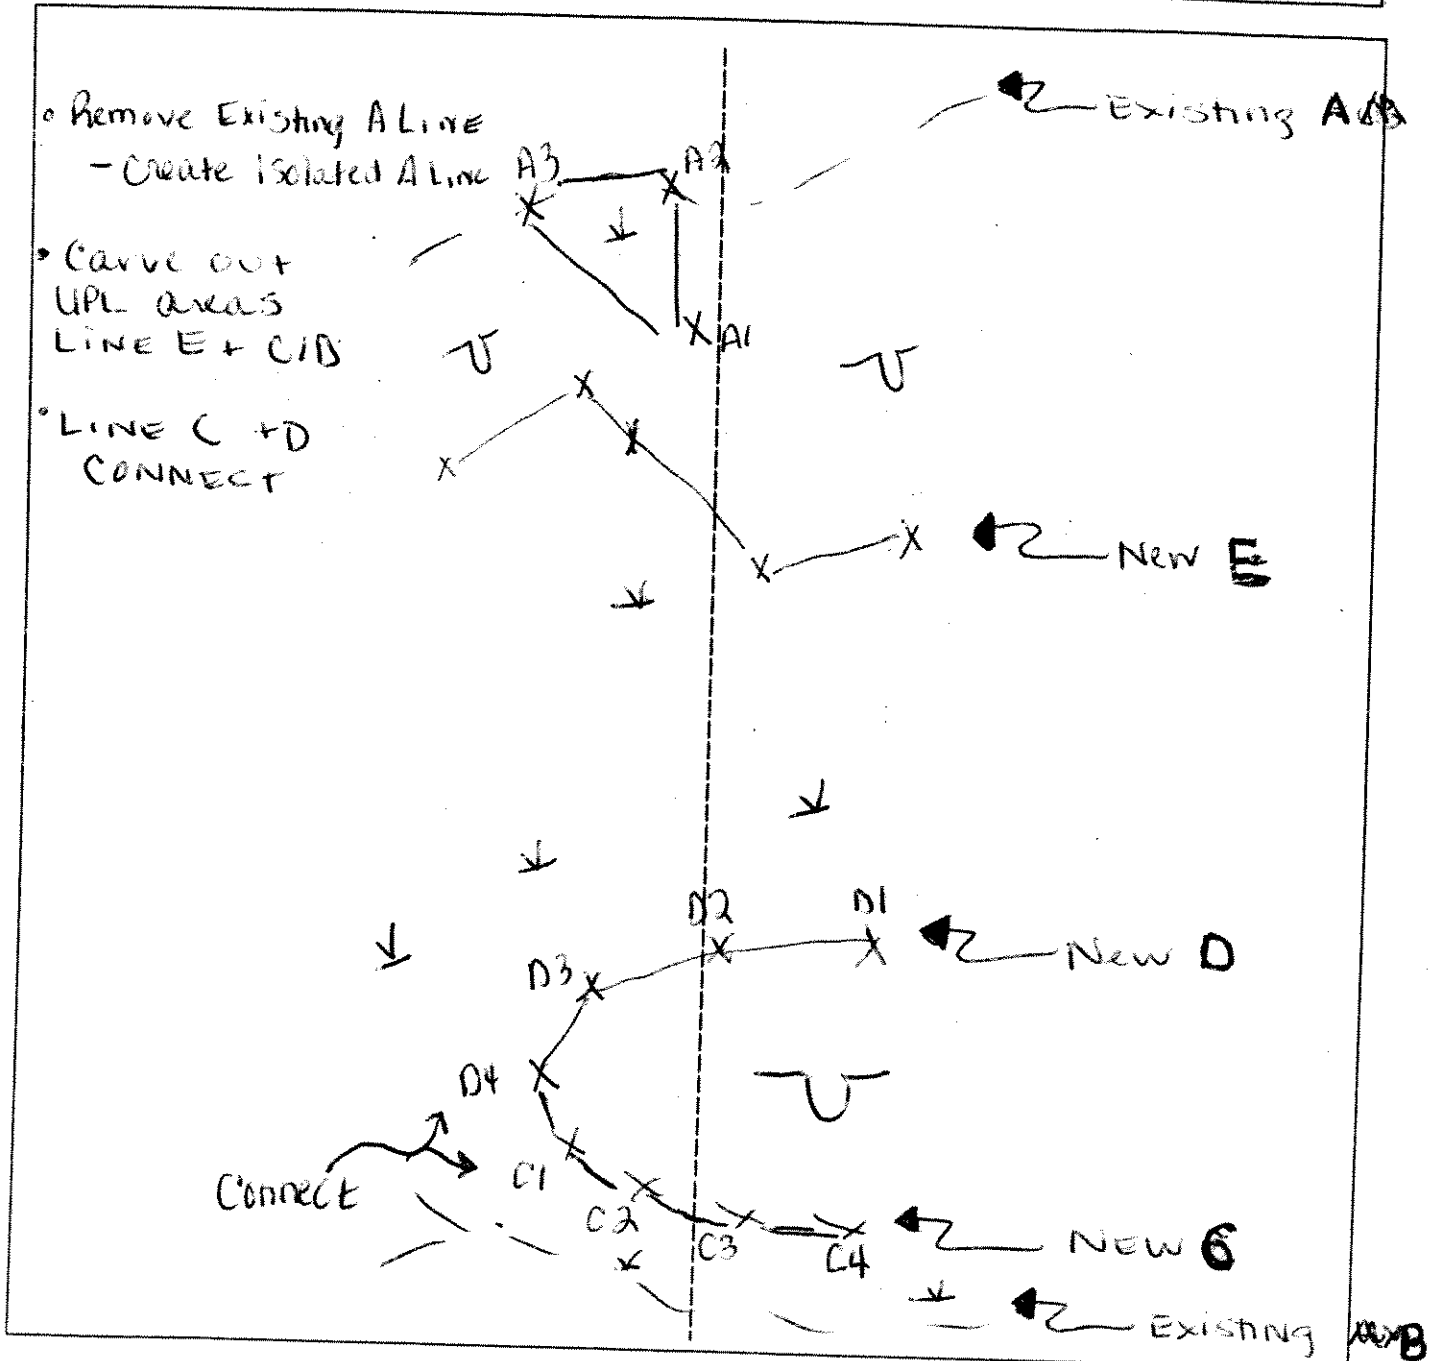 • Remove Existing A Line
- Create isolated A Line
• Carve out
UPL areas
LINE E + C/D
• LINE C + D
CONNECT
Existing A
A3
A2
A1
New E
D2
D1
New D
D3
D4
Connect
C1
C2
C3
C4
NEW C
Existing B